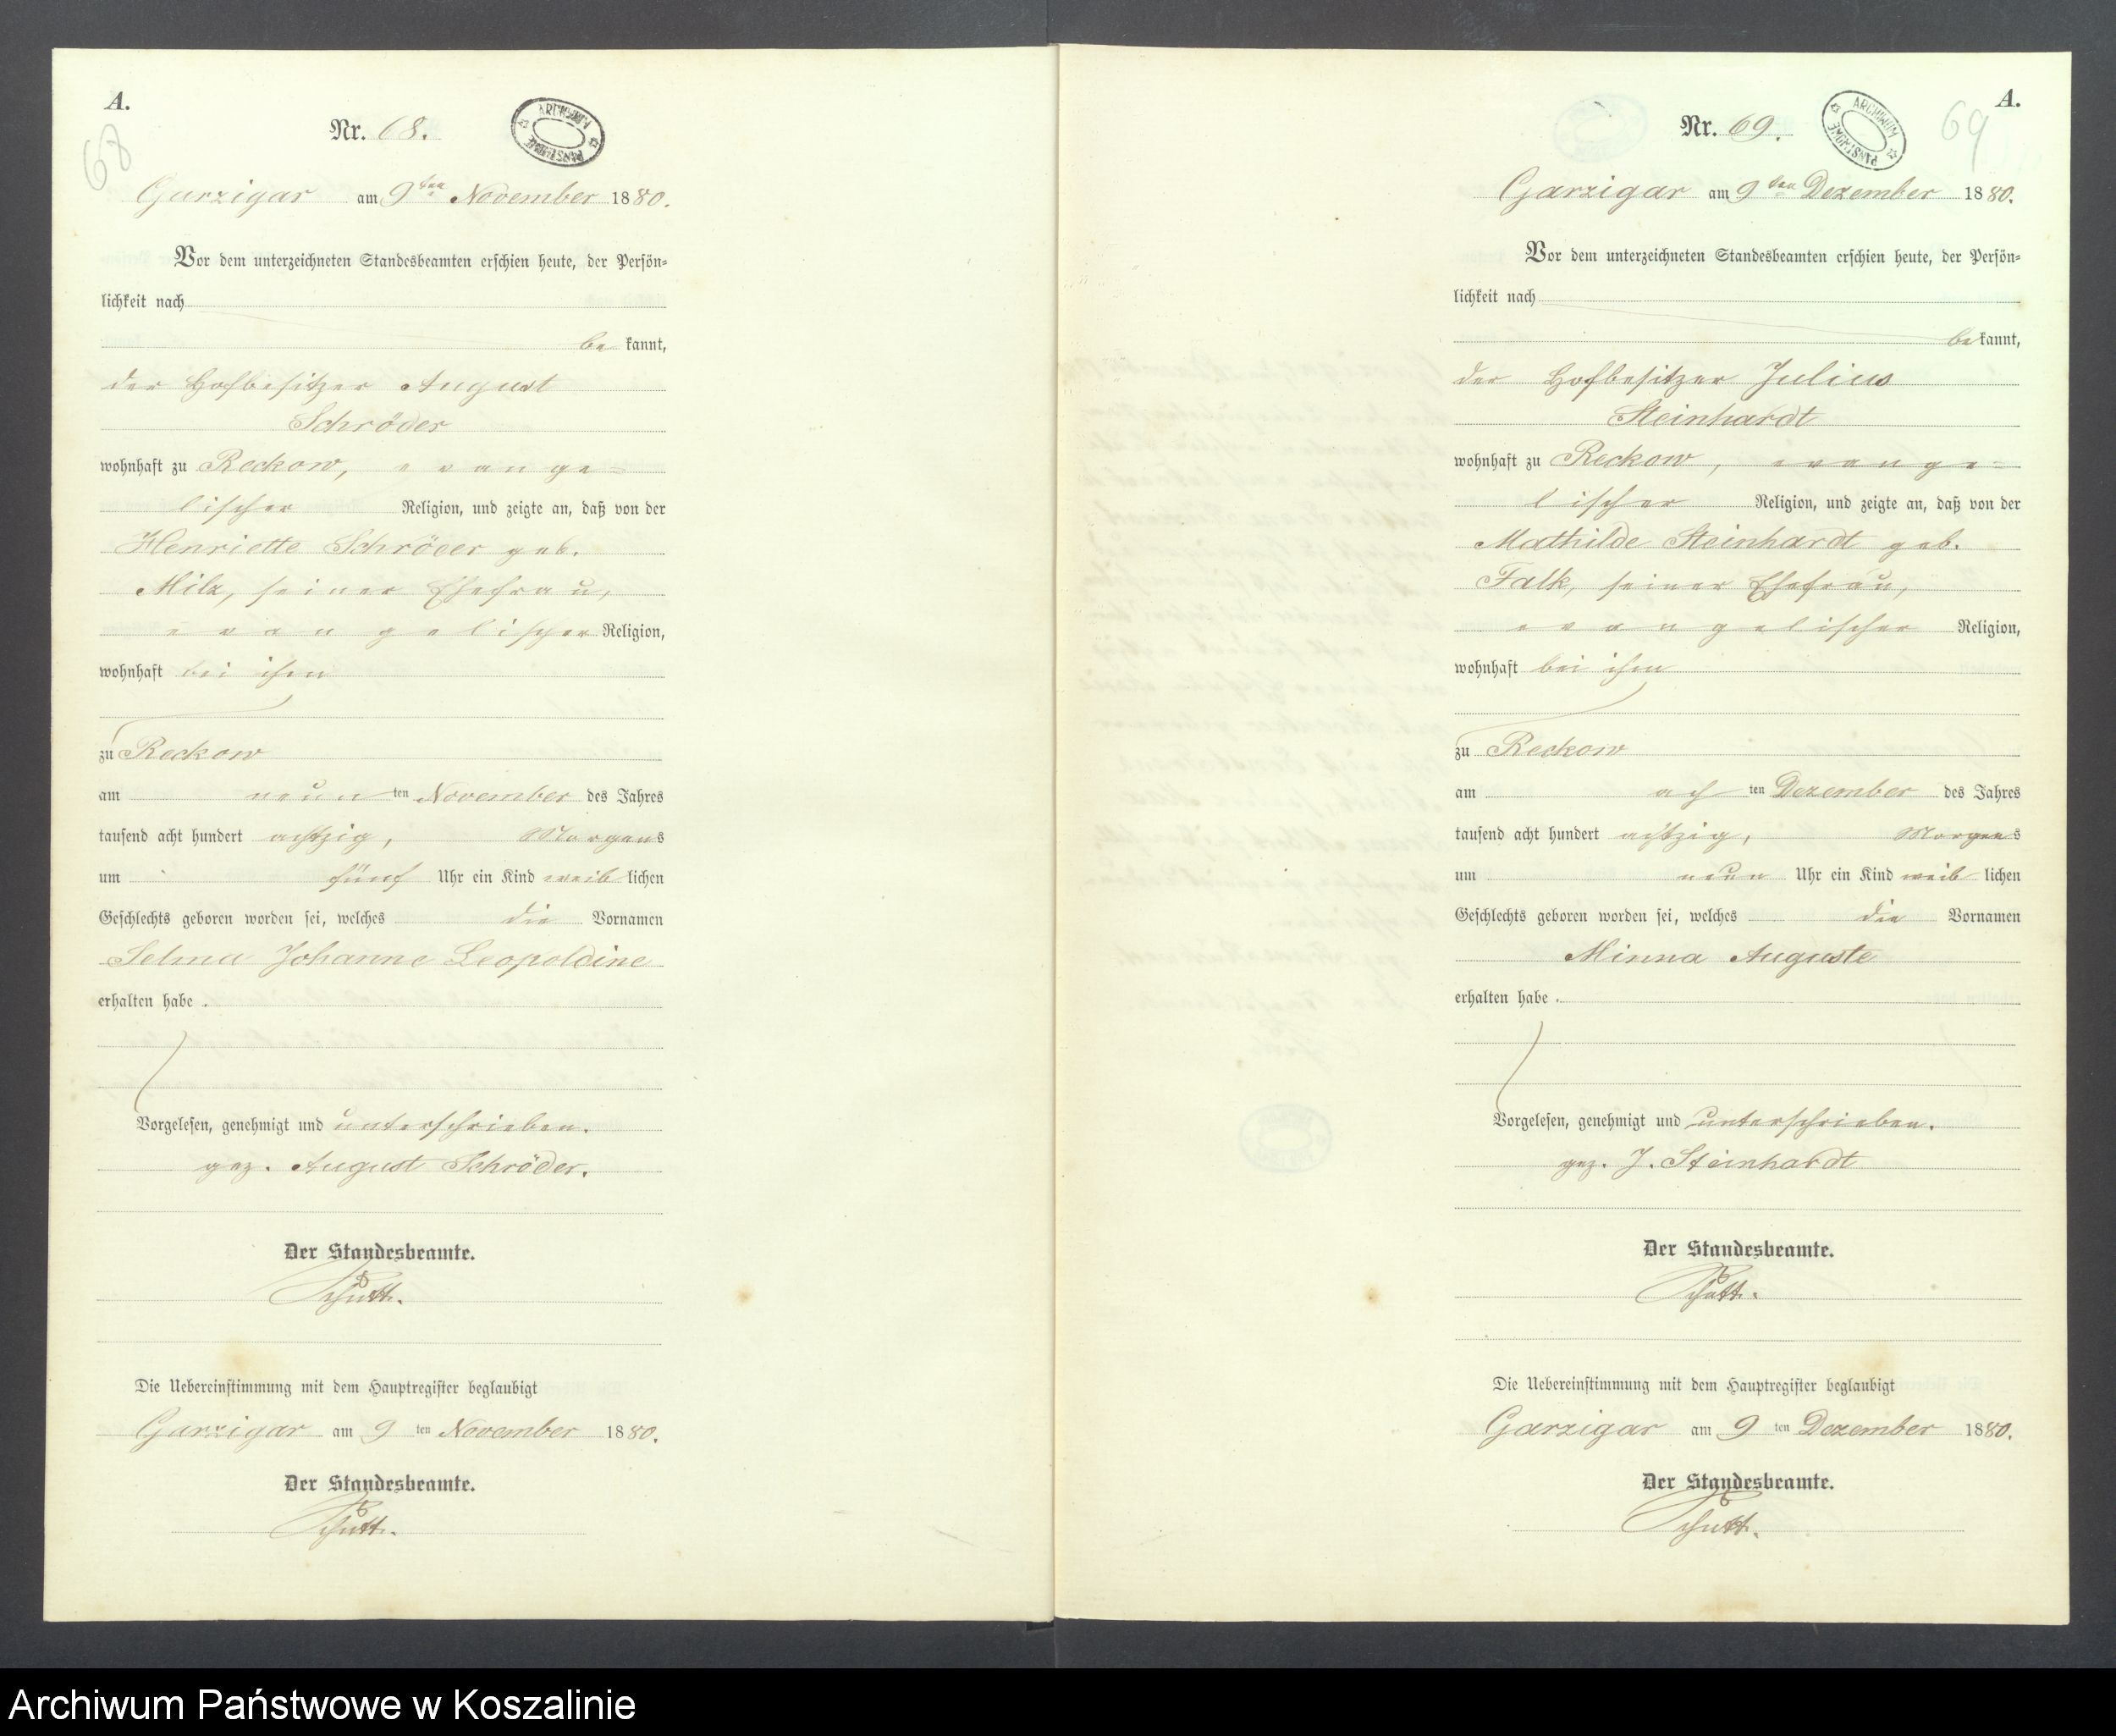 A.
Nr. 68.
ARCHIWUM PAŃSTWOWE
68
Garzigar am 9ten November 1880.
Vor dem unterzeichneten Standesbeamten erschien heute, der Persön-
lichkeit nach
be kannt,
der Hofbesitzer August
Schröder
wohnhaft zu Reckow, evange-
lischer Religion, und zeigte an, daß von der
Henriette Schröder geb.
Milz, seiner Ehefrau,
evangelischer Religion,
wohnhaft bei ihm
zu Reckow
am neun ten November des Jahres
tausend acht hundert achtzig, Morgens
um fünf Uhr ein Kind weib lichen
Geschlechts geboren worden sei, welches die Vornamen
Selma Johanne Leopoldine
erhalten habe .
Vorgelesen, genehmigt und unterschrieben.
gez. August Schröder.
Der Standesbeamte.
Schütt.
Die Uebereinstimmung mit dem Hauptregister beglaubigt
Garzigar am 9 ten November 1880.
Der Standesbeamte.
Schütt.
A.
Nr. 69.
ARCHIWUM PAŃSTWOWE
69
Garzigar am 9ten Dezember 1880.
Vor dem unterzeichneten Standesbeamten erschien heute, der Persön-
lichkeit nach
be kannt,
der Hofbesitzer Julius
Steinhardt
wohnhaft zu Reckow, evange-
lischer Religion, und zeigte an, daß von der
Mathilde Steinhardt geb.
Falk, seiner Ehefrau,
evangelischer Religion,
wohnhaft bei ihm
zu Reckow
am ach ten Dezember des Jahres
tausend acht hundert achtzig, Morgens
um neun Uhr ein Kind weib lichen
Geschlechts geboren worden sei, welches die Vornamen
Minna Auguste
erhalten habe .
Vorgelesen, genehmigt und unterschrieben.
gez. J. Steinhardt
Der Standesbeamte.
Schütt.
Die Uebereinstimmung mit dem Hauptregister beglaubigt
Garzigar am 9 ten Dezember 1880.
Der Standesbeamte.
Schütt.
Archiwum Państwowe w Koszalinie